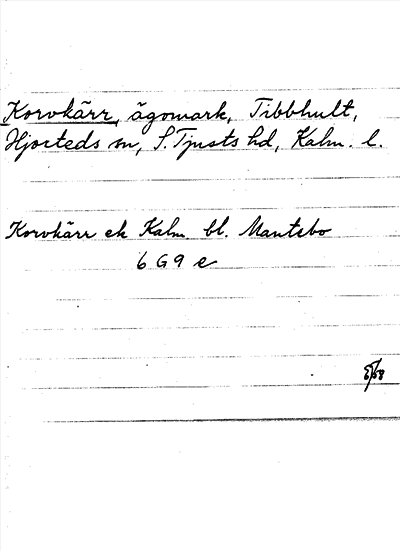 Korvkärr, ägomark, Tibbhult,
Hjorteds sn, S. Tjusts hd, Kalm. l.
Korvkärr ek Kalm. bl. Mantebo
6 G 9 e